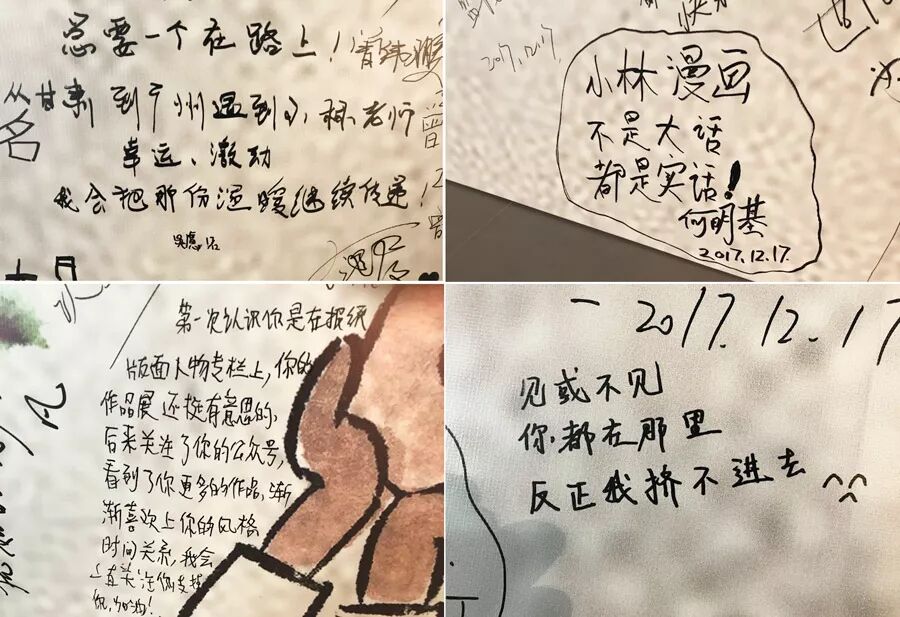 总要一个在路上!
从甘肃到广州遇到小林老师
幸运、激动
我会把那份温暖继续传递!
名
2017.12.17
小林漫画
不是大话
都是实话!
何明基
2017.12.17.
第一次认识你是在报纸
版面人物专栏上,你的
作品展还挺有意思的,
后来关注了你的公众号,
看到了你更多的作品,渐
渐喜欢上你的风格
时间关系,我会
一直关注你支持
你,加油!
2017.12.17
见或不见
你都在那里
反正我挤不进去 ^^